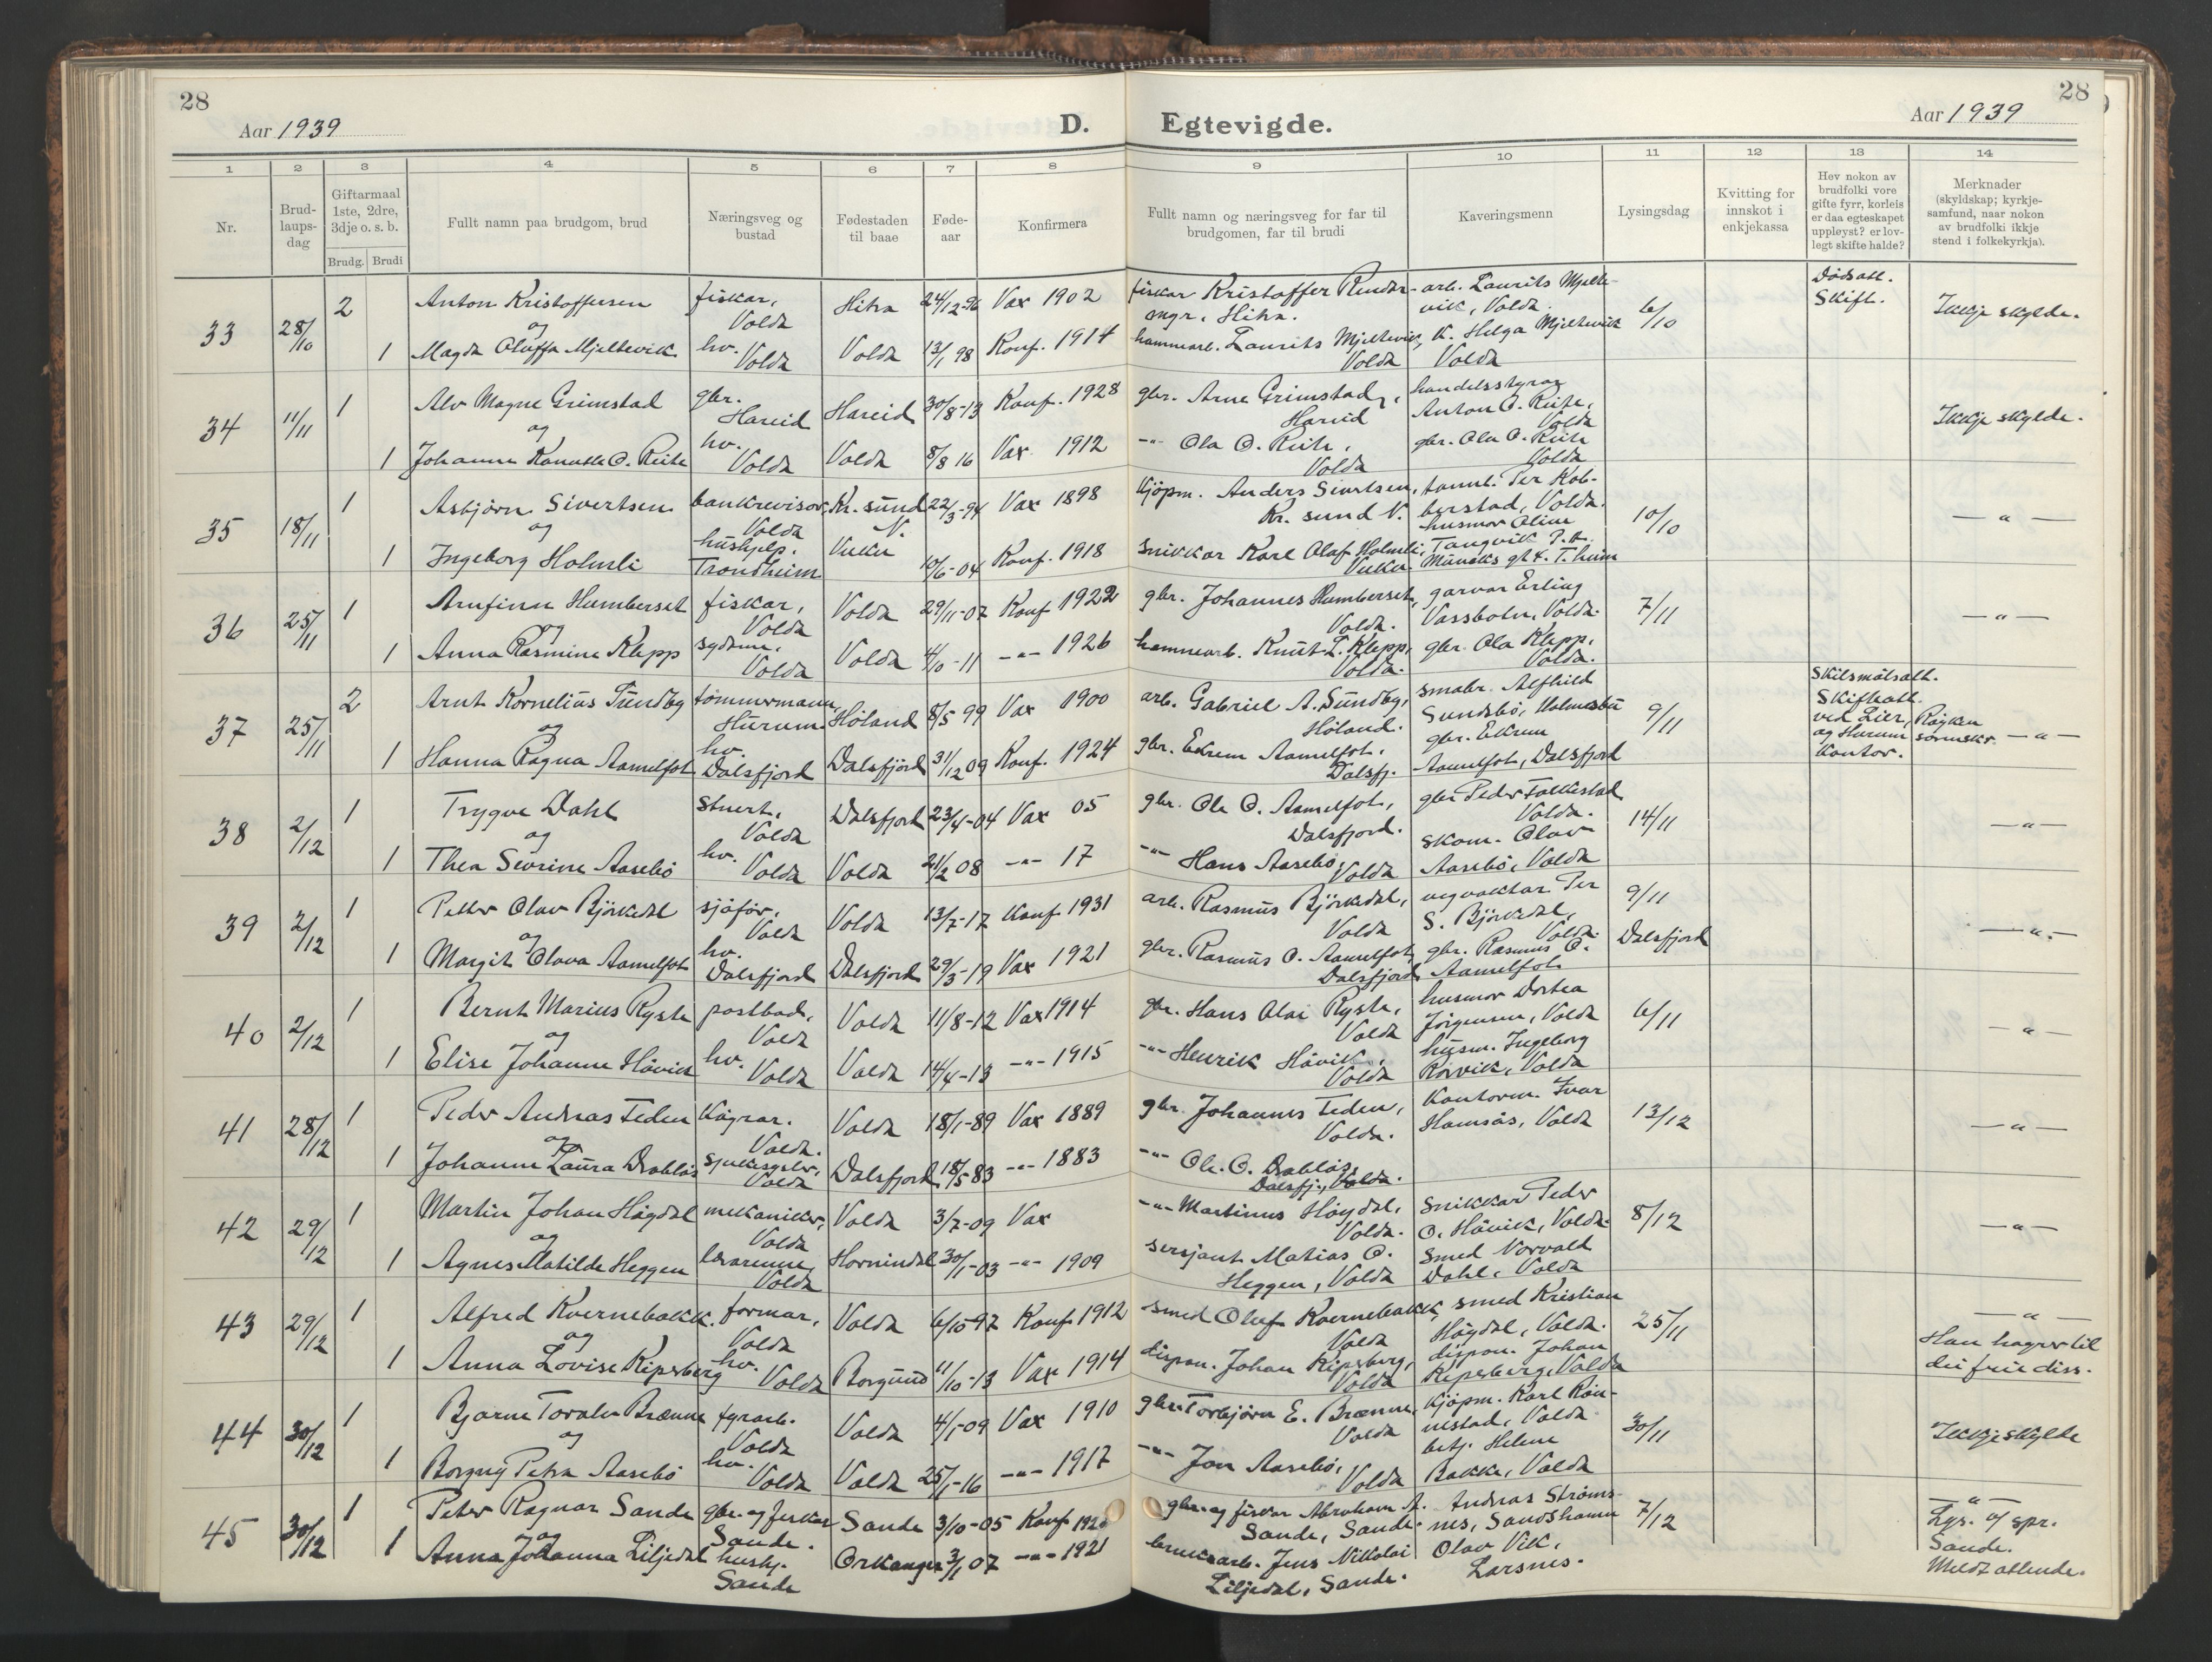 28
Aar 1939
D. Egtevigde.
Aar 1939
28
1 2 3 4 5 6 7 8 9 10 11 12 13 14
Nr.
Brud-
laups-
dag
Giftarmaal
1ste, 2dre,
3dje o. s. b.
Brudg. Brudi
Fullt namn paa brudgom, brud
Næringsveg og
bustad
Fødestaden
til baae
Føde-
aar
Konfirmera
Fullt namn og næringsveg for far til
brudgomen, far til brudi
Kaveringsmenn
Lysingsdag
Kvitting for
innskot i
enkjekassa
Hev nokon av
brudfolki vore
gifte fyrr, korleis
er daa egteskapet
uppløyst? er lov-
legt skifte halde?
Merknader
(skyldskap; kyrkje-
samfund, naar nokon
av brudfolki ikkje
stend i folkekyrkja).
33 28/10 2 Anton Kristoffersen fiskar, Volda Hitra 24/12-96 Vax 1902 fiskar Kristoffer arb. Laurits Mjelte-
vik, Volda 6/10 Dødsatt. Skift. Ikkje skylde.
og
1 Magda Oluffa Mjeltevik hv. Volda Volda 13/1 98 Konf. 1914 hamnearb. Laurits Mjeltevik, Volda K. Helga Mjeltevik Volda
34 11/11 1 Alv Magne Grimstad gbr. Hareid Hareid 30/8-13 Konf. 1928 gbr. Arne Grimstad, Hareid handelsstyrar Anton O. Riite, Volda Ikkje skylde.
og
1 Johanne O. Riite hv. Volda Volda 8/8 16 Vax 1912 -"- Ola O. Riite, Volda gbr. Ola O. Riite Volda
35 18/11 1 Asbjörn Sivertsen bankrevisor, Volda Kr. sund N. 22/3-94 Vax 1898 Kjöpm. Anders Sivertsen, Kr. sund N. tannl. Per Kob-
berstad, Volda. 10/10 -"-
og
1 Ingeborg Holmli hushjelp. Trondheim Vuku 10/6-04 Konf. 1918 snikkar Karl Olaf Holmli, Vuku husmor Oline Tangvik
36 25/11 1 Arnfinn Humberset fiskar, Volda Volda 29/11-07 Konf 1922 gbr. Johannes Humberset, Volda. garvar Erling Vassbotn, Volda. 7/11 -"-
og
1 Anna Rasmine Klepp sydame, Volda Volda -11 -"- 1926 hamnearb. Knut L. Klepp, Volda. gbr. Ola Klepp, Volda.
37 25/11 2 Arnt Kornelius Sundby tömmermann, Hurum Höland 8/5 99 Vax 1900 arb. Gabriel A. Sundby, Höland. smabr. Alfhild Sundsbö, Holmsbu 9/11 Skilsmålsatt. Skifteatt. ved Lier, Röyken og Hurum sorenskr. kontor. -"-
og
1 Hanna Ragna Aamelfot hv. Dalsfjord Dalsfjord 31/12 09 Konf. 1924 gbr. Ekrem Aamelfot, Dalsfj. gbr. Ekrem Aamelfot, Dalsfjord
38 2/12 1 Trygve Dahl stuert, Volda Dalsfjord 23/4-04 Vax 05 gbr. Ole O. Aamelfot, Dalsfjord. gbr Peder Folkestad Volda. 14/11 -"-
og
1 Thea Sivrine Aasebö hv. Volda Volda 21/2 08 -"- 17 -"- Hans Aasebö, Volda skom. Olav Aasebö, Volda
39 2/12 1 Petter Olav Björkedal sjåför, Volda Volda 13/7-17 Konf. 1931 arb. Rasmus Björkedal, Volda vegvaktar Per S. Björkedal, Volda 9/11 -"-
og
1 Margit Olava Aamelfot hv. Dalsfjord Dalsfjord 29/3-19 Vax 1921 gbr. Rasmus O. Aamelfot, Dalsfjord gbr. Rasmus O. Aamelfot Dalsfjord
40 2/12 1 Bernt Marius Ryste postbud, Volda Volda 11/8-12 Vax 1914 gbr. Hans Olai Ryste, Volda husmor Dortea Jörgensen, Volda 6/11 -"-
og
1 Elise Johanne Håvik hv. Volda Volda 14/4-13 -"- 1915 -"- Henrik Håvik, Volda husm. Ingeborg Rörvik, Volda
41 28/12 1 Peder Andreas Feden Vågrar. Volda. Volda 18/1-89 Vax 1889 gbr. Johannes Feden, Volda. Kontorm. Ivar Hamsås, Volda 13/12 -"-
og
1 Johanne Laura Drabløs Volda Dalsfjord 18/5 83 -"- 1883 -"- Ole O. Drabløs, Dalsfj., Volda.
42 29/12 1 Martin Johan Högdal mekaniker, Volda Volda 3/7-09 Vax -"- Martinus Höydal, Volda. Snikkar Peder O. Håvik, Volda. 8/12 -"-
og
1 Agnes Matilde Heggen lærarinne, Volda Hornindal 30/1-03 -"- 1909 sersjant Matias O. Heggen, Volda Smed Norvald Dahl, Volda
43 29/12 1 Alfred Kvernebakk formar, Volda Volda 6/10 97 Konf 1912 smed Oluf Kvernebakk, Volda smed Kristian Högdal, Volda. 25/11 -"-
og
1 Anna Lovise Ripsberg hv. Volda Borgund 11/10-13 Vax 1914 dispon. Johan Ripsberg, Volda dispon. Johan Ripsberg, Volda Han høyrer til dei frie diss.
44 30/12 1 Bjarne Toralv Brænne fyrarb. Volda Volda 4/1-09 Vax 1910 gbr. Torbjörn E. Brænne, Volda Kjöpm. Karl Rön-
nestad, Volda 30/11 Ikkje skylde
og
1 Borgny Petra Aasebö hv. Volda Volda 25/1-16 -"- 1917 -"- Jon Aasebö, Volda betj. Helene Bakke, Volda
45 30/12 1 Peter Ragnar Sande gbr. og fiskar Sande. Sande 3/10-05 Konf 1920 gbr. og fiskar Abraham A. Sande, Sande. Andreas Ströms-
nes, Sandshamn 7/12 -"- Lys. og spr. Sande.
og
1 Anna Johanna Liljedal hushj. Sande Orkanger 3/1 07 -"- 1921 bruksarb. Jens Nikolai Liljedal, Sande. Olav Vik, Larsnes. Meldt attende.